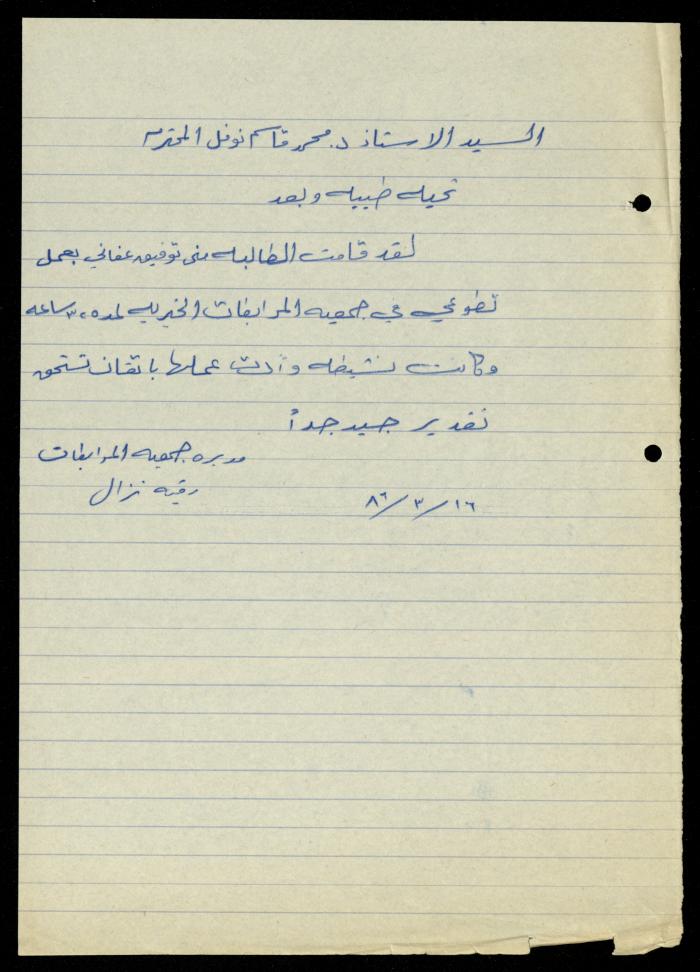 السيد الاستاذ د. محمد قاسم نوفل المحترم
تحيه طيبيه وبعد
لقد قامت الطالبه منى توفيق عفاني بعمل
تطوعي في جمعيه المرابطات الخيريه لمده ٣٠ ساعه
وكانت نشيطه وأدت عملها باتقان تستحق
تقدير جيد جداً
مديره جمعيه المرابطات
رقيه نزال
٨٦/٣/١٦